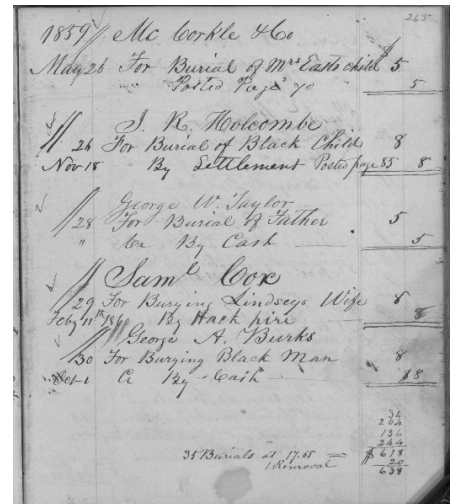 265
1859 // Mc Corkle & Co $
May 26 For Burial of Mrs Easts child 5
Posted Page 70 5
// J. R. Holcombe
26 For Burial of Black Child 8
Nov 18 By Settlement Posted page 85 8
// George W. Taylor
28 For Burial of Father 5
" Cr By Cash 5
// Saml Cox
29 For Burying Lindseys Wife 8
Feby 11th 1860 By Hack 8
// George A. Burks
30 For Burying Black Man 8
Oct 1 Cr By Cash $8
34
204
136
244
35 Burials at 17.65 = $618
1 Removal 20
638